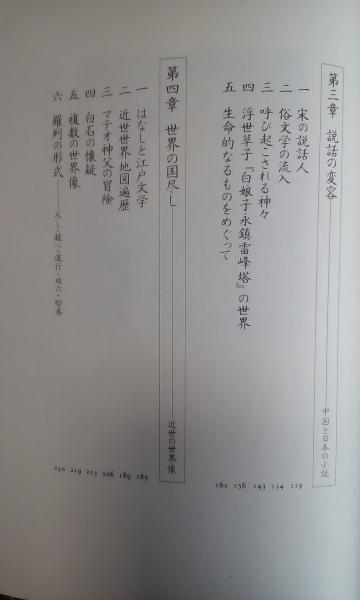 第三章　説話の変容　中国と日本の小説
一　宋の説話人　119
二　俗文学の流入　134
三　呼び起こされる神々　143
四　浮世草子『白娘子永鎮雷峰塔』の世界　156
五　生命的なるものをめぐって　162
第四章　世界の国尽し　近世の世界像
一　はなしと江戸文学　185
二　近世世界地図遍歴　189
三　マテオ神父の冒険　206
四　白石の懐疑　213
五　複数の世界像　219
六　羅列の形式　尽し・競べ・道行・双六・絵巻　230